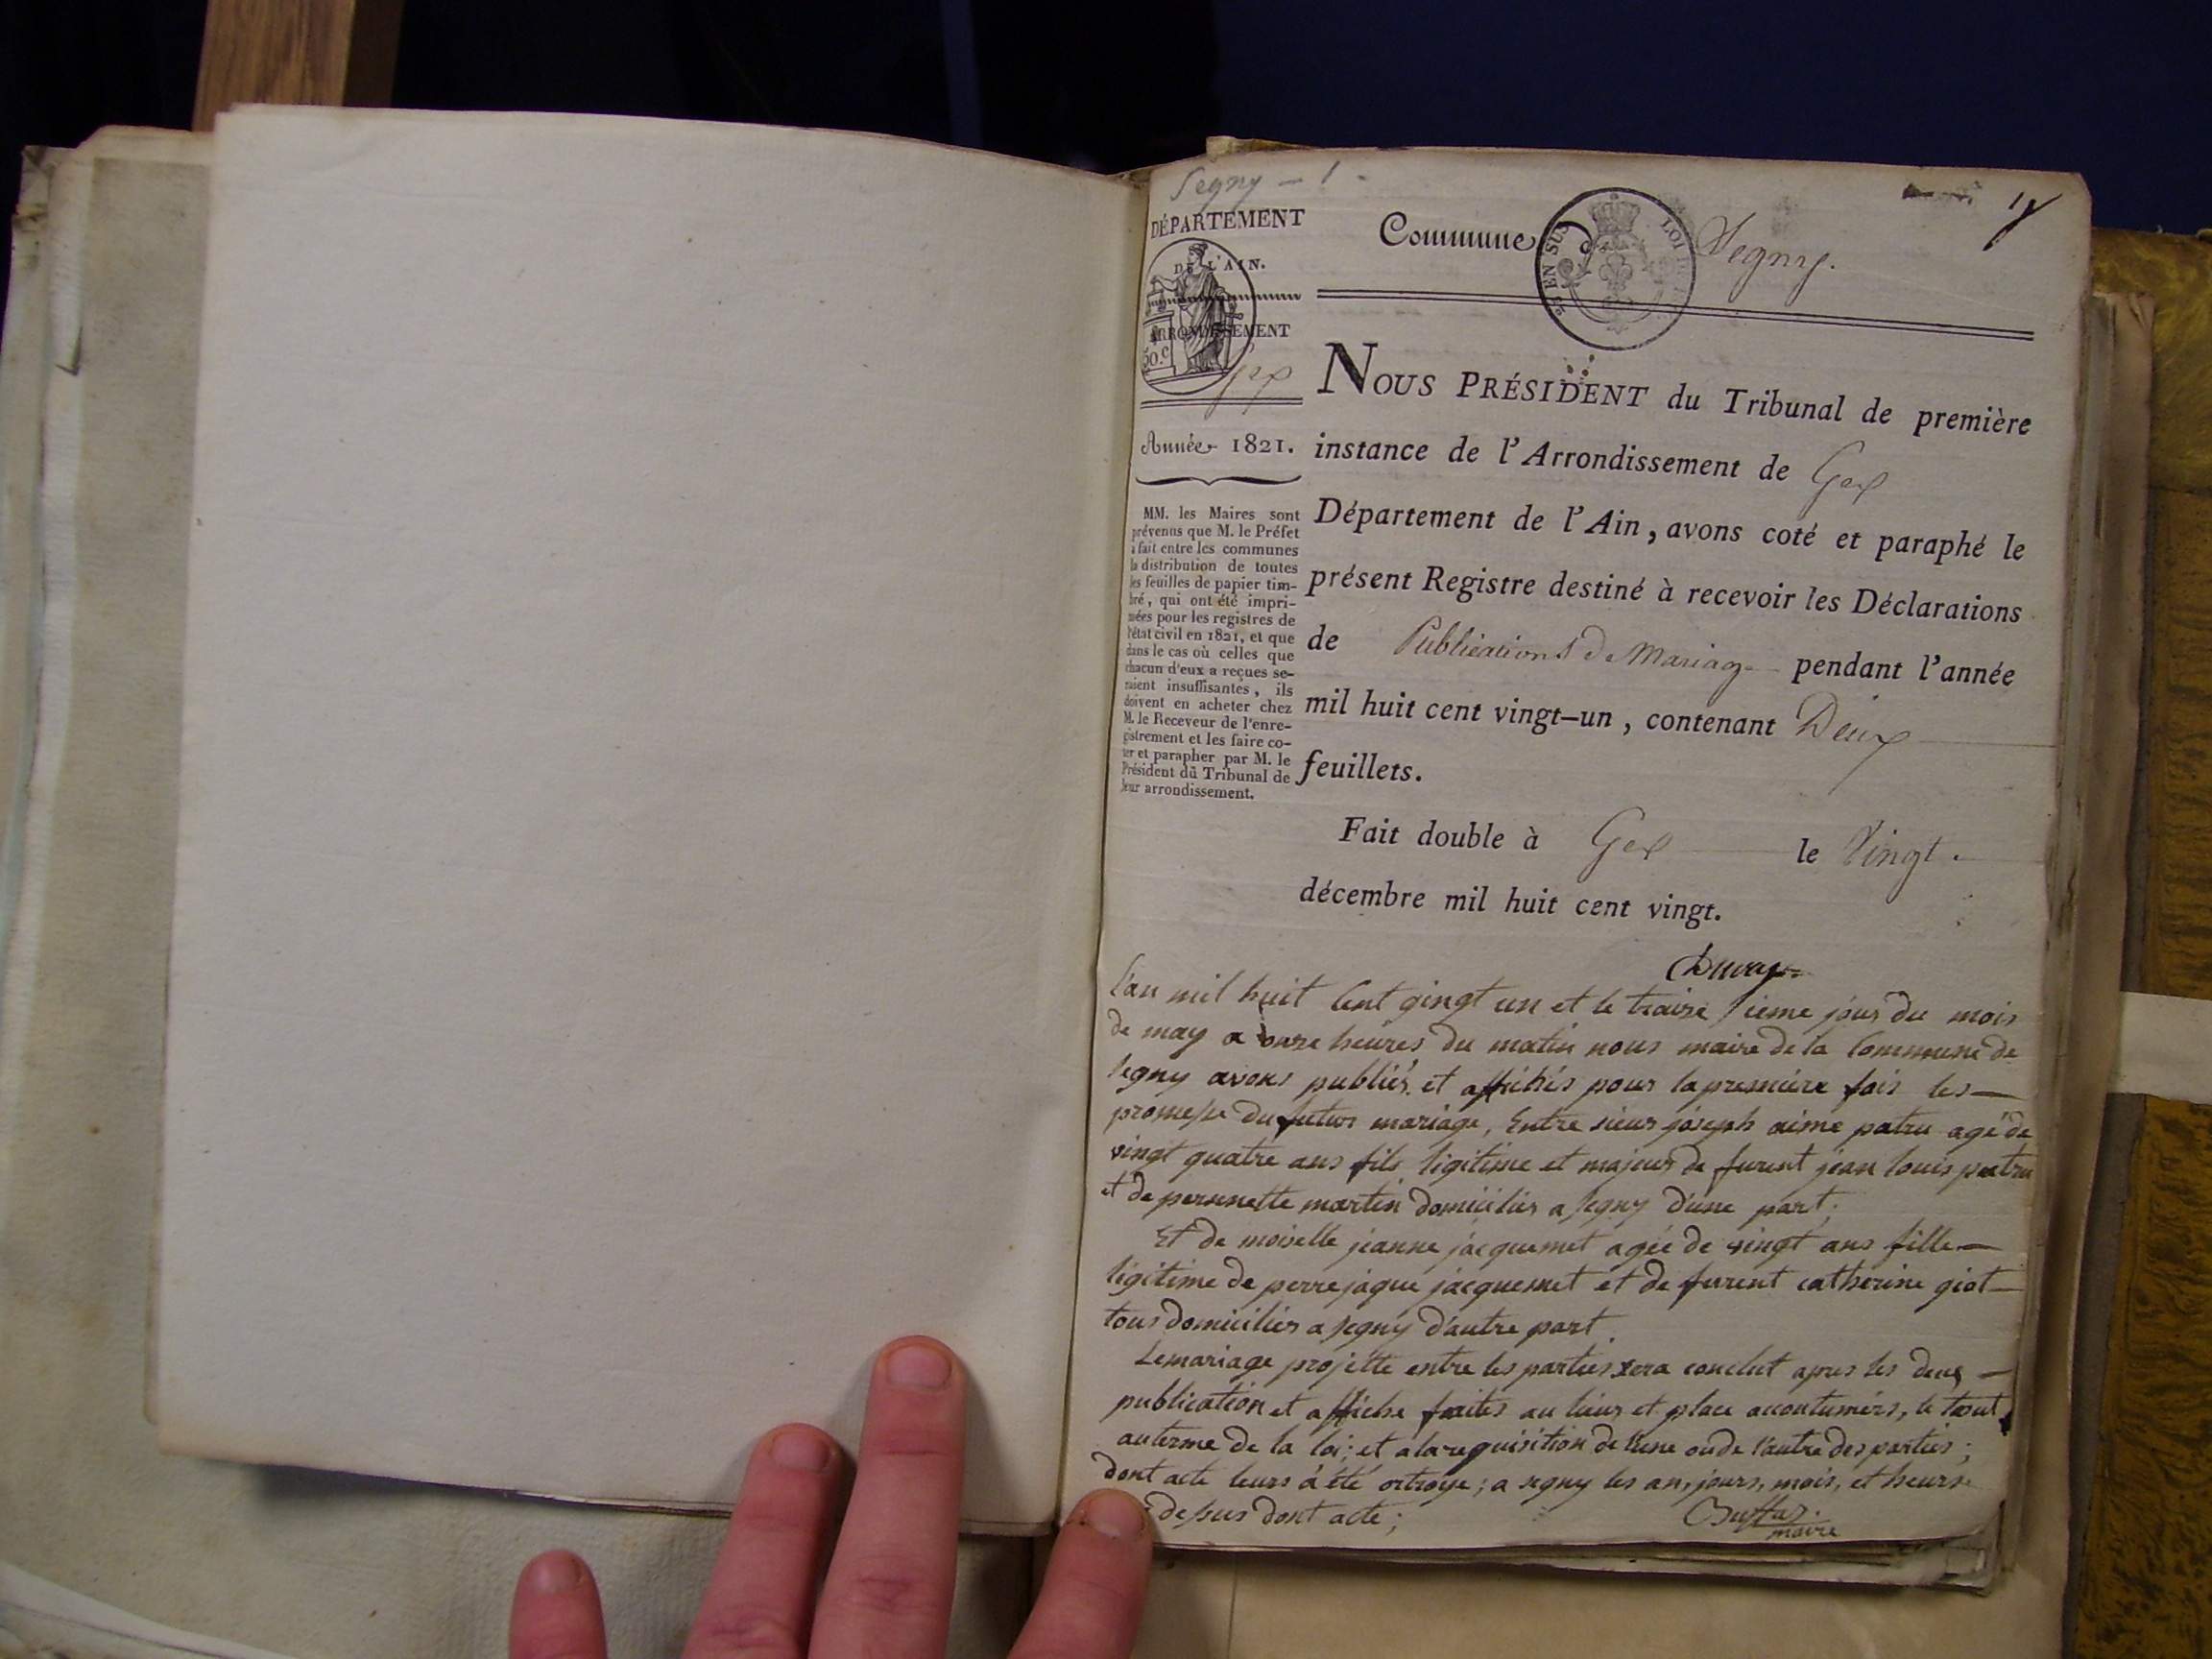 Segny - 1 -
DÉPARTEMENT
DE L'AIN.
ARRONDISSEMENT
50.c
gex
Année 1821.
MM. les Maires sont
prévenus que M. le Préfet
a fait entre les communes
la distribution de toutes
les feuilles de papier tim-
bré, qui ont été impri-
mées pour les registres de
l'état civil en 1821, et que
dans le cas où celles que
chacun d'eux a reçues se-
raient insuffisantes, ils
doivent en acheter chez
M. le Receveur de l'enre-
gistrement et les faire co-
ter et parapher par M. le
Président du Tribunal de
leur arrondissement.
Commune Segny.
EN SUS LOI
NOUS PRÉSIDENT du Tribunal de première
instance de l'Arrondissement de Gex
Département de l'Ain, avons coté et paraphé le
présent Registre destiné à recevoir les Déclarations
de Publications de Mariage pendant l'année
mil huit cent vingt-un, contenant Deux
feuillets.
Fait double à Gex le Vingt.
décembre mil huit cent vingt.
l'an mil huit Cent gingt un et le traize ieme jour du mois
de may a onze heures du matin nous maire de la Commune de
segny avons publiés et affichés pour la premiere fois les
promesse du futur mariage, Entre sieur joseph aime patru agé de
vingt quatre ans fils ligitime et majeur de furent jean louis patru
et de pernnette martin domiciliés a segny d'une part;
Et de moiselle jeanne jacquemet agée de vingt ans fille
légitime de perre jaque jacquemet et de furent catherine giot
tous domiciliés a segny d'autre part.
Le mariage projétte entre les parties sera conclut apres les deux
publication et affiche faites au lieur et place acoutumérs, le tout
au terme de la loi; et a la requisition de l'une ou de l'autre des parties;
dont acte leurs a été ortroye; a segny les an, jours, mois, et heurs
depsus dont acte;
maire